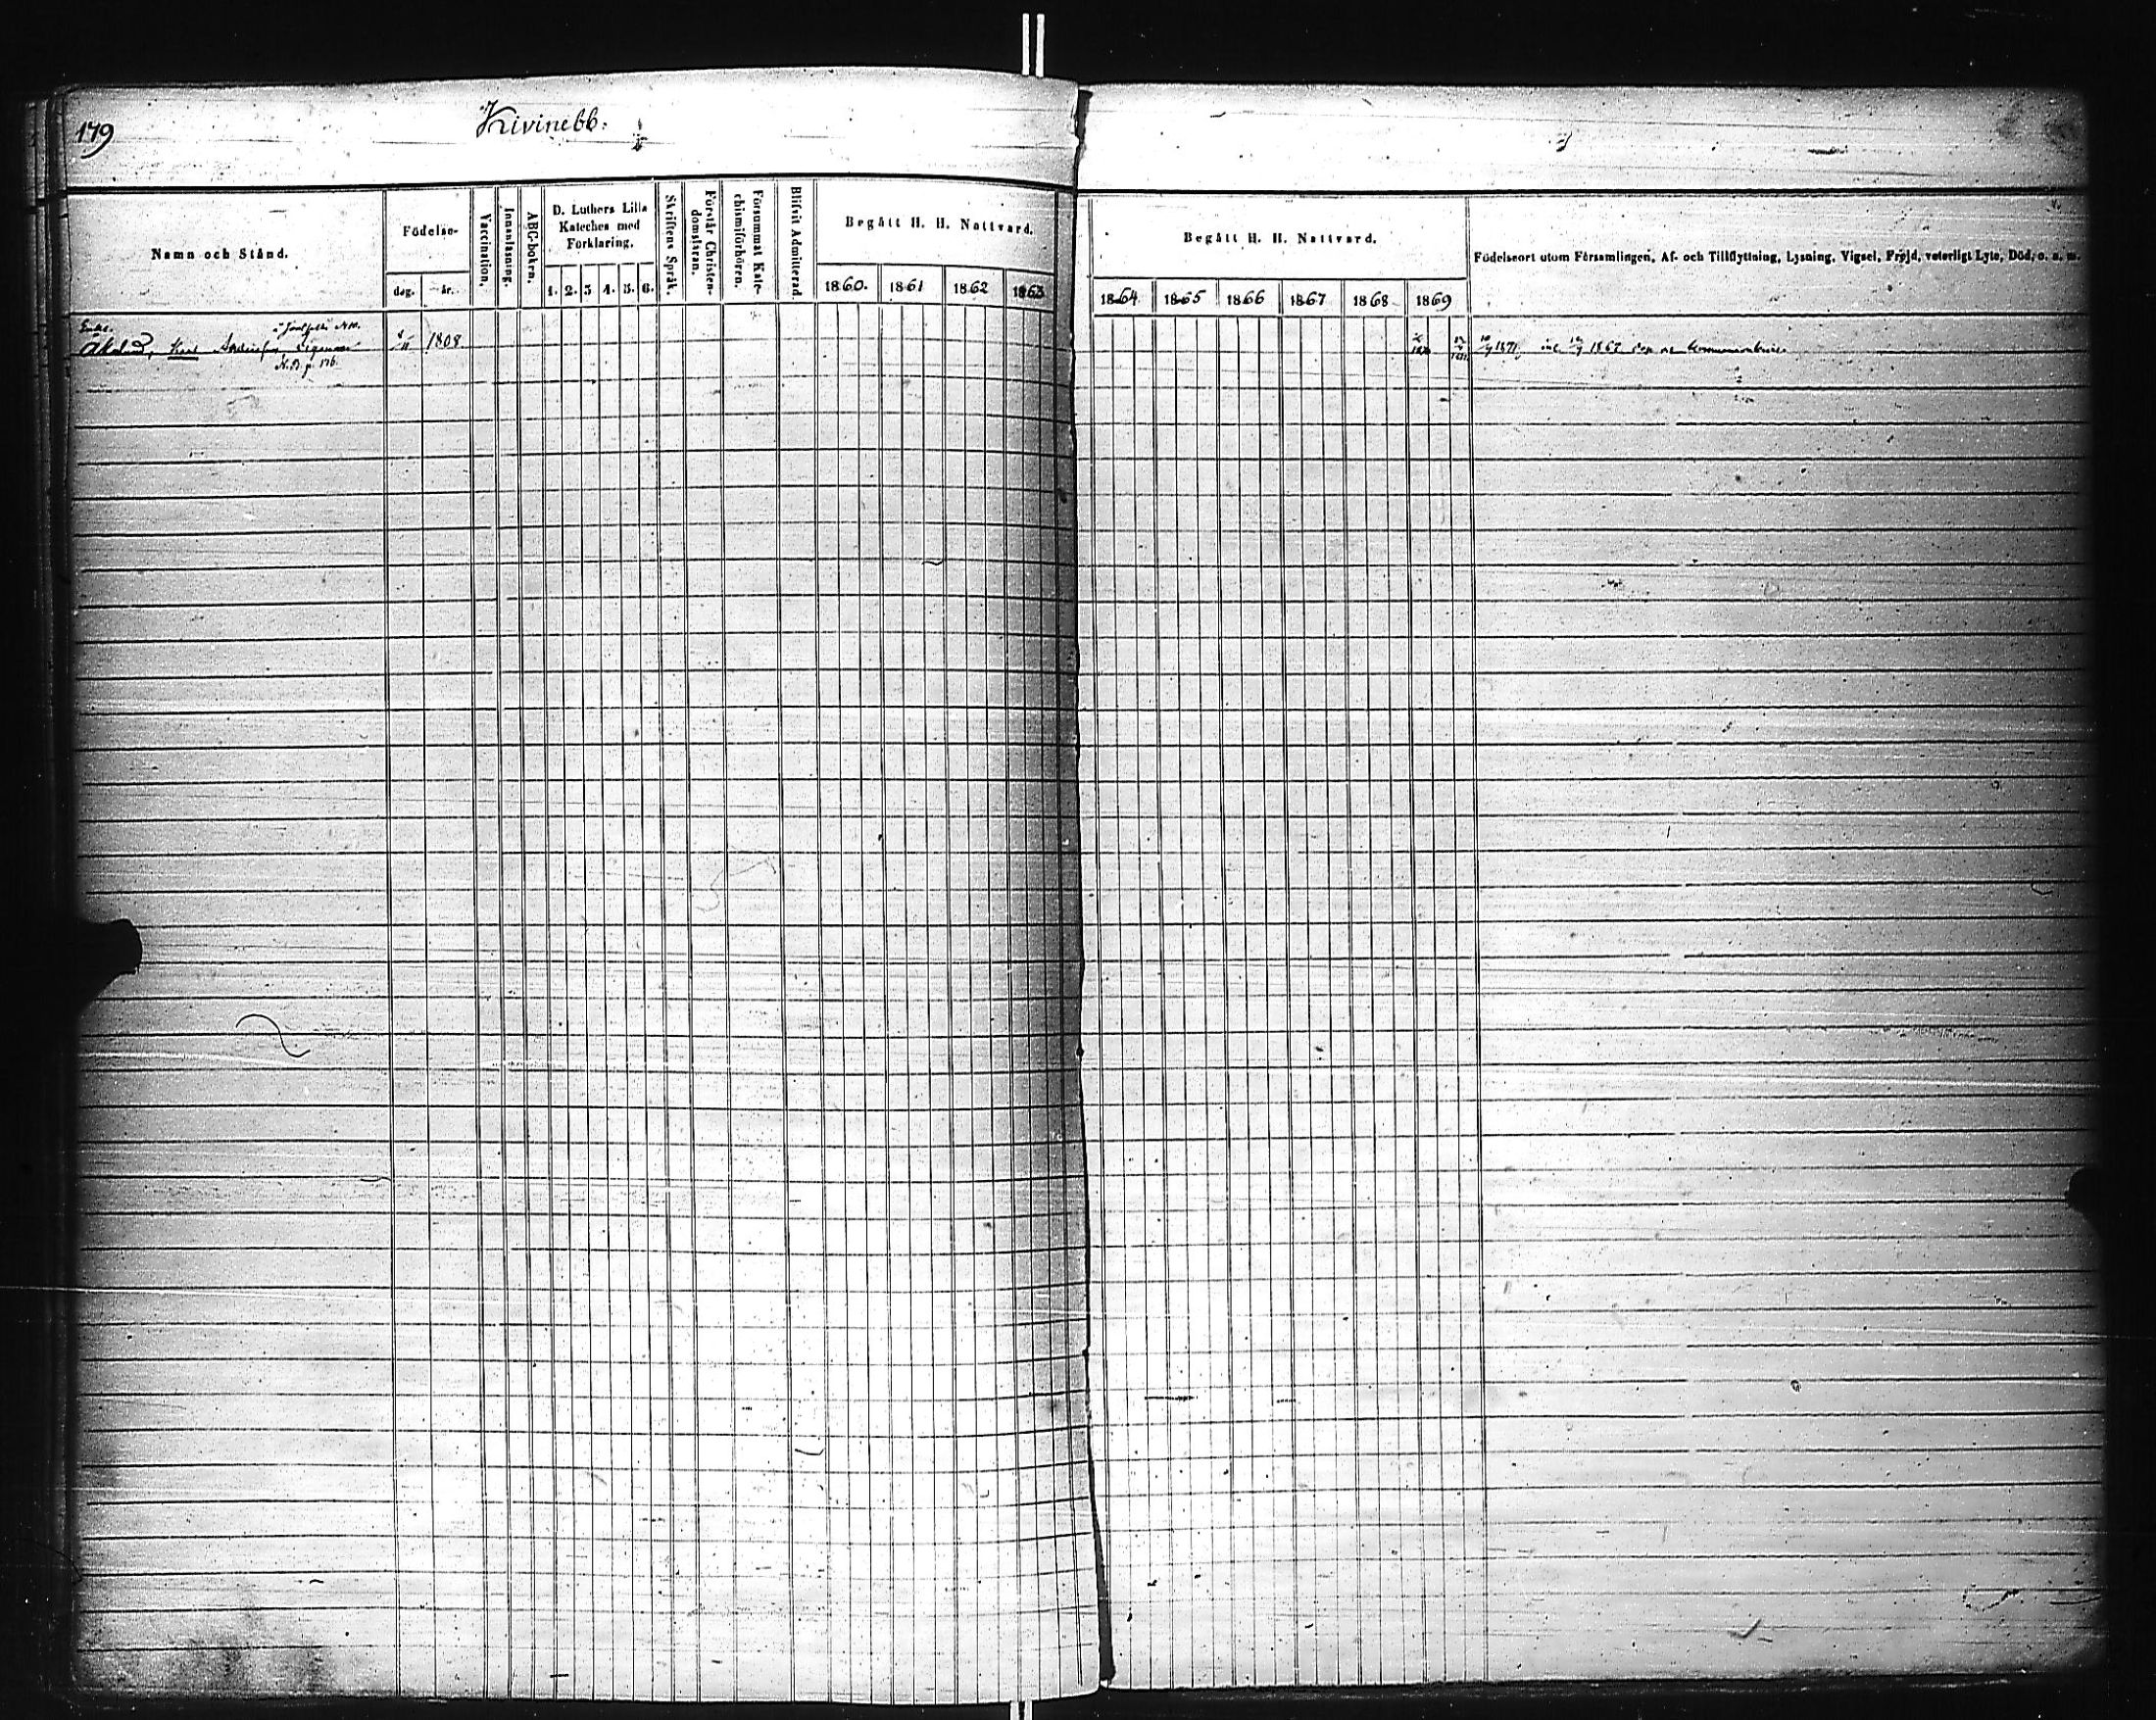 179
Kivinebb:
Namn och Stånd.
Födelse-
dag.
år.
Vaccination.
Innanläsning.
ABC-boken.
D. Luthers Lilla
Kateches med
Förklaring.
1. 2. 3 4. 5. 6.
Skriftens Språk.
Förstår Christen-
domsläran.
Försummat Kate-
chismiförhören.
Blifvit Admitterad.
Begått H. H. Nattvard.
1860. 1861 1862 1863
Begått H. H. Nattvard.
1864 1865 1866 1867 1868 1869
Födelseort utom Församlingen, Af- och Tillflyttning, Lysning, Vigsel, Fräjd, veterligt Lyte, Död, o. s. m.
Enkl.
1808
K.B. p. 176
1871 1867